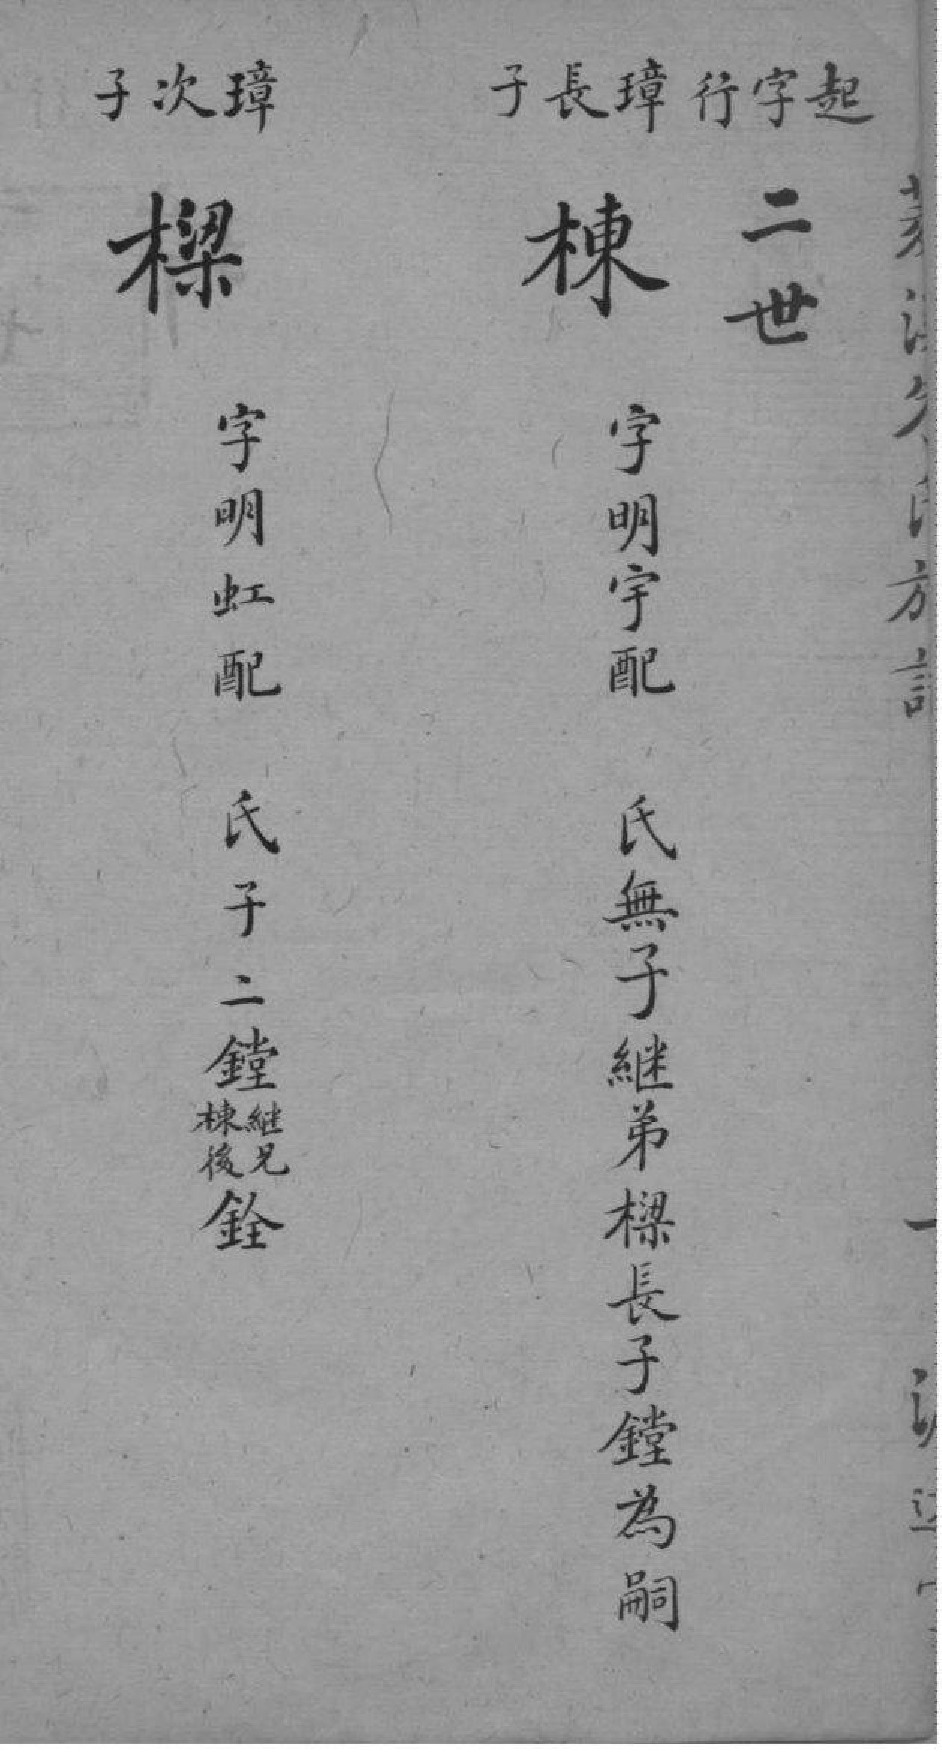 起字行
二世
璋長子
棟
字明宇配 氏無子継弟樑長子鏜為嗣
璋次子
樑
字明虹配 氏子二鏜継兄棟後銓